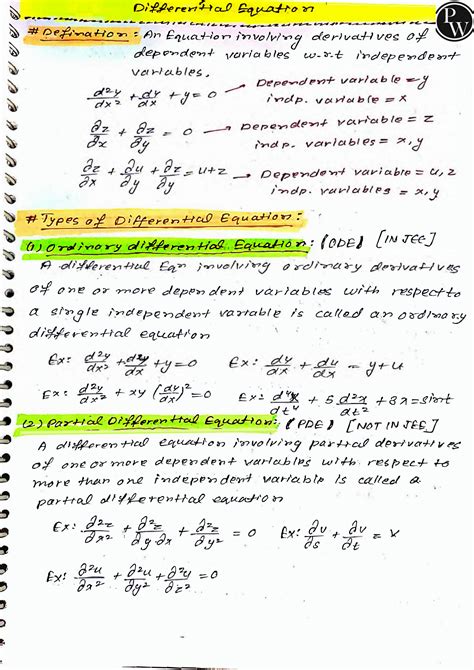 Differential Equation
P
W
# Defination: An Equation involving derivatives of
dependent variables w.r.t independent
variables.
d²y/dx² + dy/dx + y = 0 → Dependent variable = y
indp. variable = x
∂z/∂x + ∂z/∂y = 0 → Dependent variable = z
indp. variables = x, y
∂z/∂x + ∂u/∂y + ∂z/∂y = u+z → Dependent variable = u, z
indp. variables = x, y
# Types of Differential Equation:
(1) Ordinary differential Equation: (ODE) [IN JEE]
A differential Eqn involving ordinary derivatives
of one or more dependent variables with respect to
a single independent variable is called an ordinary
differential equation
Ex: d²y/dx² + dy/dx + y = 0 Ex: dy/dx + du/dx = y+u
Ex: d²y/dx² + xy (dy/dx)² = 0 Ex: d⁴x/dt⁴ + 5 d²x/dt² + 8x = sint
(2) Partial Differential Equation: (PDE) [NOT IN JEE]
A differential equation involving partial derivatives
of one or more dependent variables with respect to
more than one independent variable is called a
partial differential equation
Ex: ∂²z/∂x² + ∂²z/∂y∂x + ∂²z/∂y² = 0 Ex: ∂v/∂s + ∂v/∂t = x
Ex: ∂²u/∂x² + ∂²u/∂y² + ∂²y/∂z² = 0